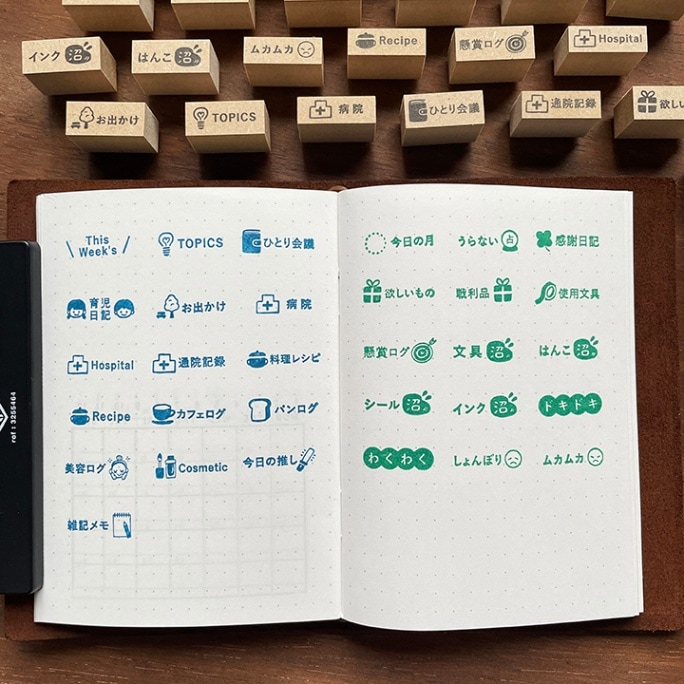 インク 沼
はんこ 沼
ムカムカ
Recipe
懸賞ログ
Hospital
お出かけ
TOPICS
病院
ひとり会議
通院記録
欲しい
This
Week's
TOPICS
ひとり会議
育児
日記
お出かけ
病院
Hospital
通院記録
料理レシピ
Recipe
カフェログ
パンログ
美容ログ
Cosmetic
今日の推し
雑記メモ
今日の月
うらない 占
感謝日記
欲しいもの
戦利品
使用文具
懸賞ログ
文具 沼
はんこ 沼
シール 沼
インク 沼
ドキドキ
わくわく
しょんぼり
ムカムカ
ref : 3255464